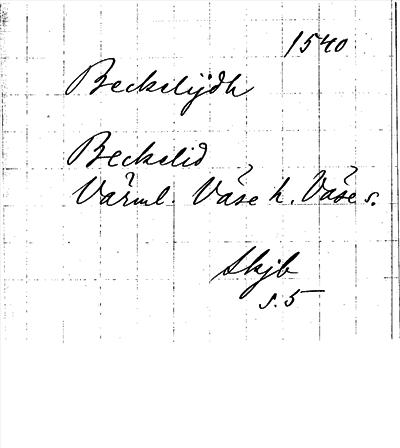 1540
Beckelijdh
Beckelid
Värml. Väse h. Väse s.
Skjb
s. 5